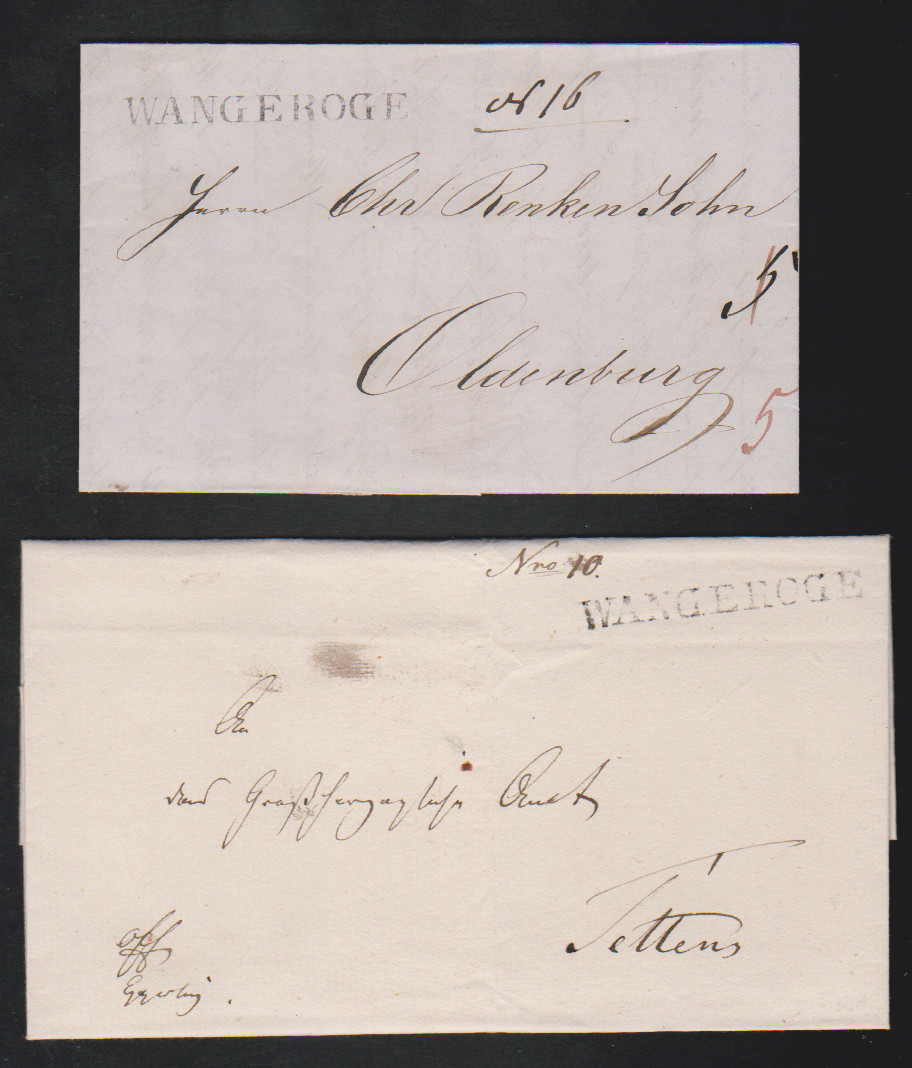 WANGEROGE
№ 16
Herrn Chr Renken Sohn
5
Oldenburg
5
Nro 10.
WANGEROGE
An
das Großherzogliche Amt
Tettens
off